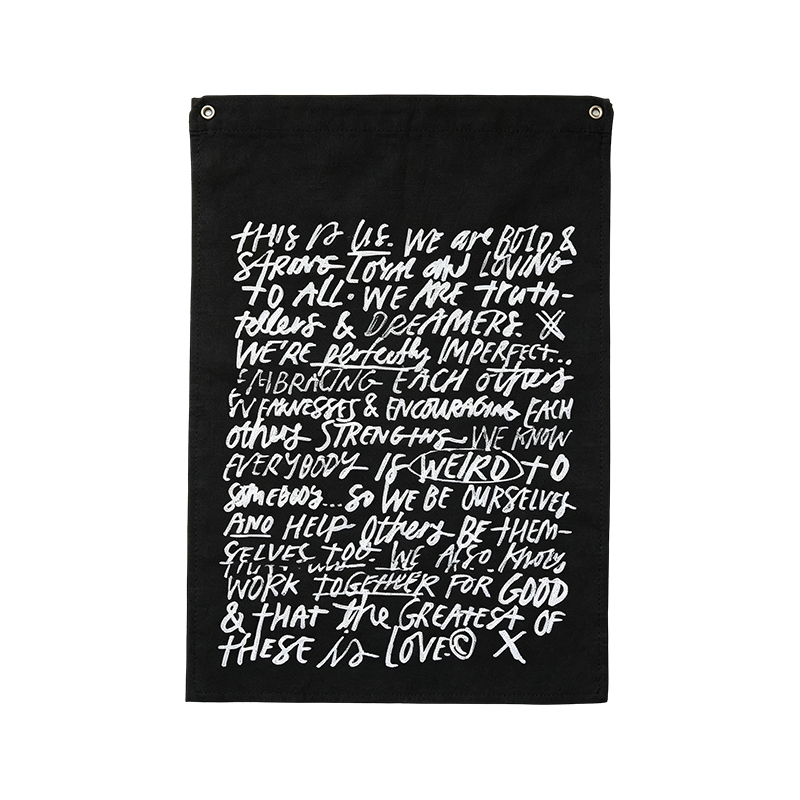 THIS IS US. WE are BOLD &
STRONG LOYAL and LOVING
TO ALL. WE ARE truth-
tellers & DREAMERS X
WE'RE perfectly IMPERFECT...
EMBRACING EACH others
WEAKNESSES & ENCOURAGING EACH
others STRENGTHS WE KNOW
EVERYBODY IS WEIRD TO
SOMEBODY... SO WE BE OURSELVES
AND HELP others BE THEM-
SELVES TOO. WE ALSO KNOW
WORK TOGETHER FOR GOOD
& THAT the GREATEST OF
THESE is LOVE © X